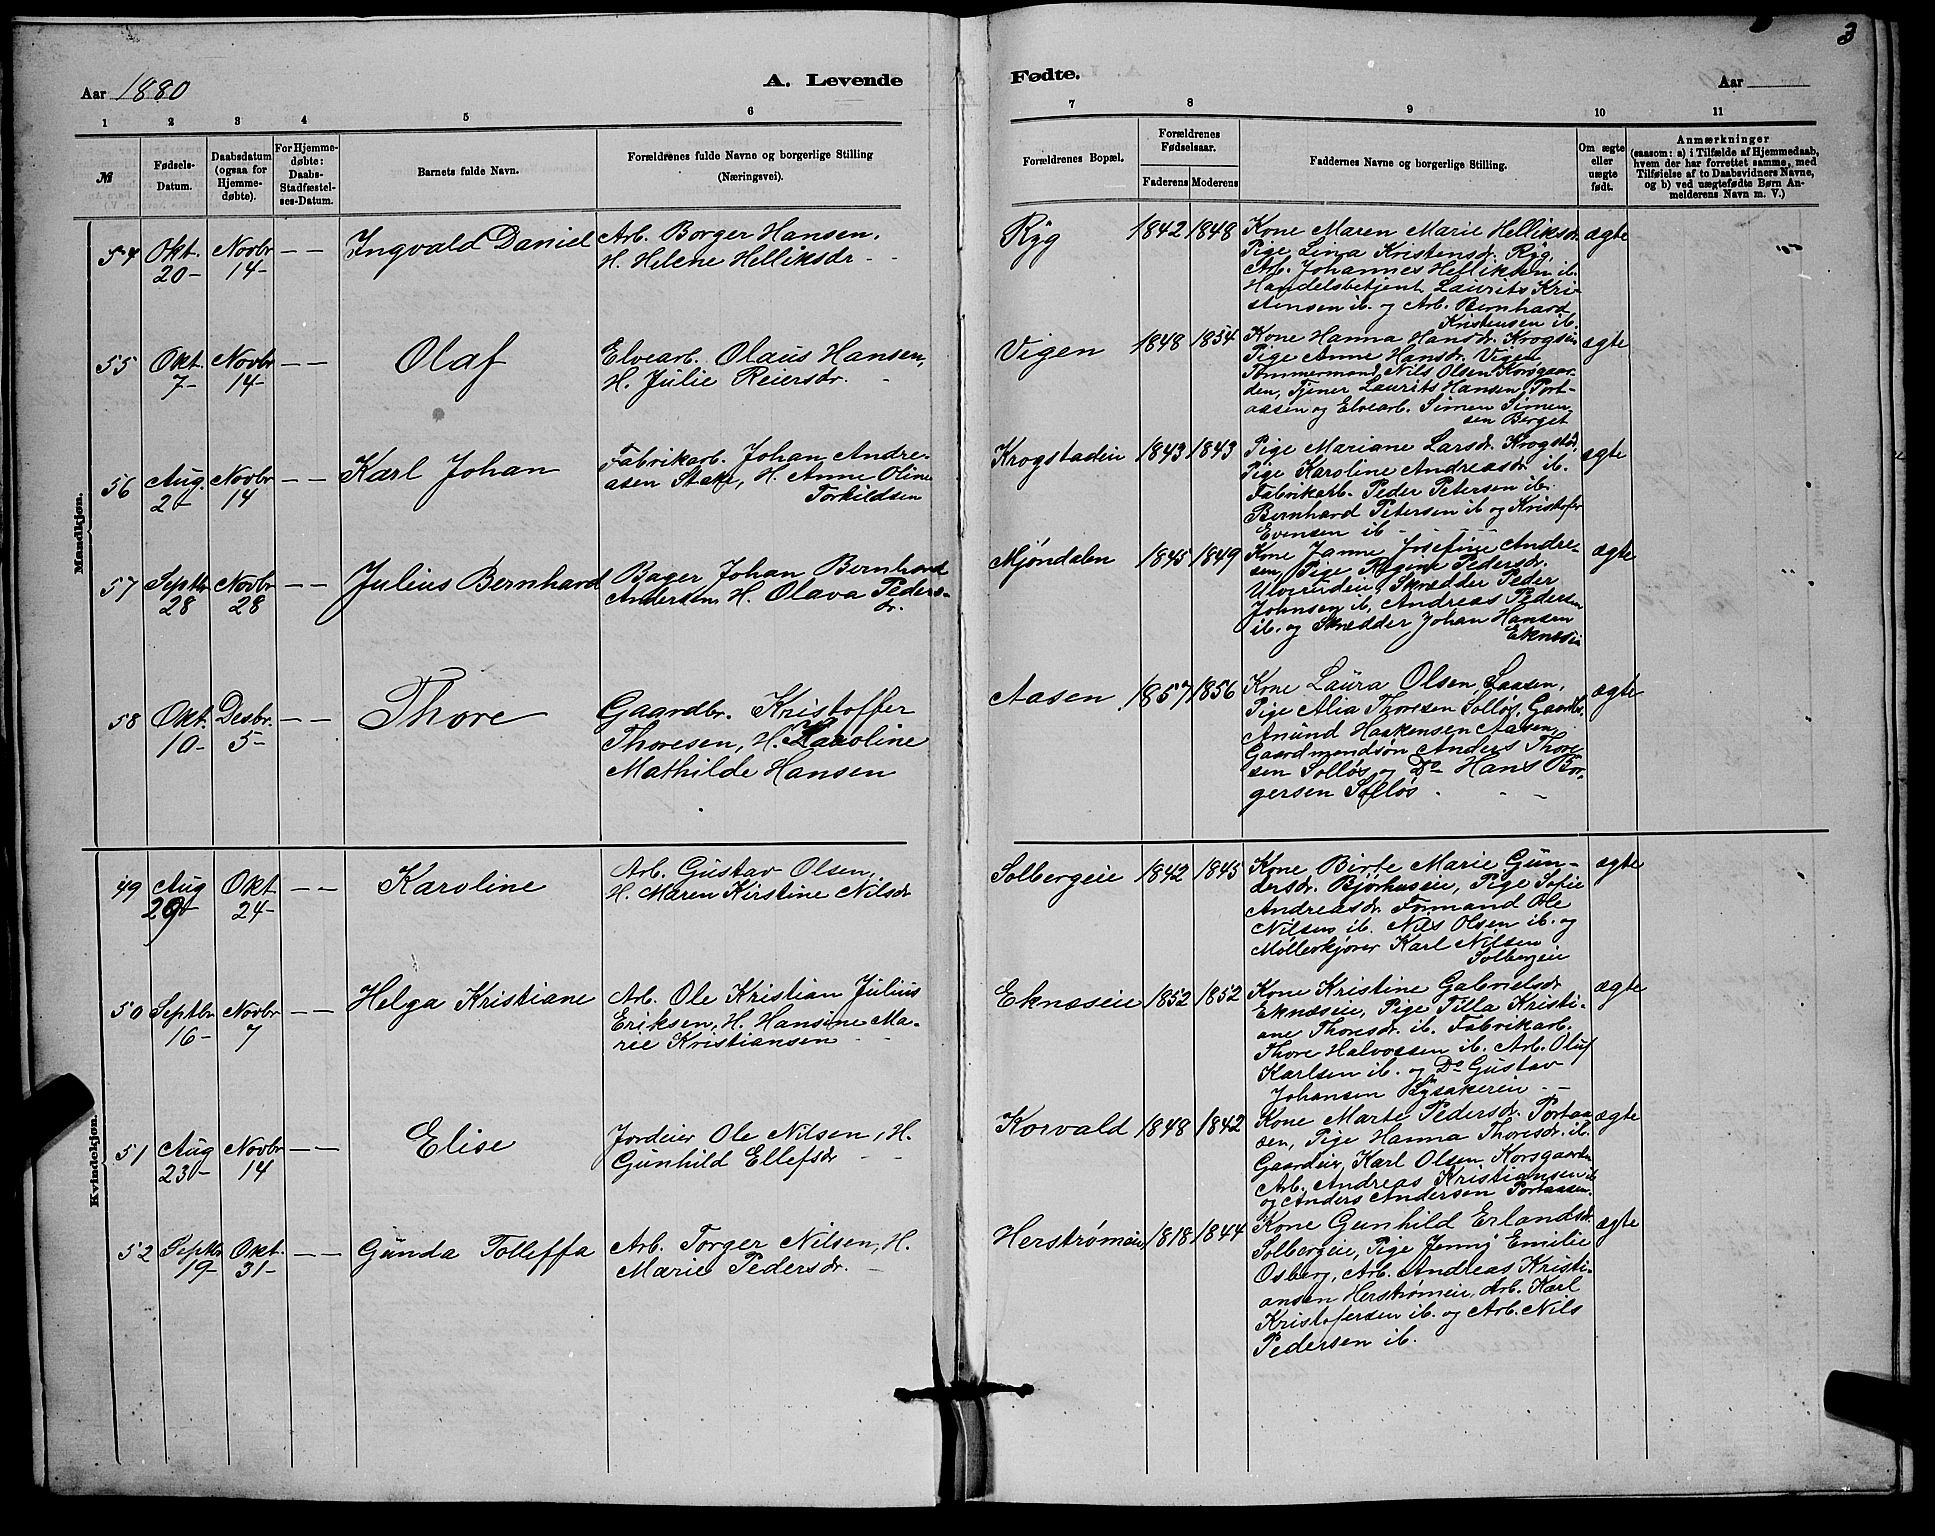 3
Aar 1880
A. Levende
Fødte.
Aar
1 2 3 4 5 6 7 8 9 10 11
№
Fødsels-
Datum.
Daabsdatum
(ogsaa for
Hjemme-
døbte).
For Hjemme-
døbte:
Daabs-
Stadfæstel-
ses-Datum.
Barnets fulde Navn.
Forældrenes fulde Navne og borgerlige Stilling
(Næringsvei).
Forældrenes Bopæl.
Forældrenes
Fødselsaar.
Faderens Moderens
Faddernes Navne og borgerlige Stilling.
Om ægte
eller
uægte
født.
Anmærkninger
(saasom: a) i Tilfælde af Hjemmedaab,
hvem der har forrettet samme, med
Tilføielse af to Daabsvidners Navne,
og b) ved uægtefødte Børn An-
melderens Navn m. V.)
Mandkjøn.
54 Okt. 20- Novbr 14- — — Ingvald Daniel
Arb. Borger Hansen,
H. Helene Helliksdr - -
Ryg 1842 1848
Kone Maren Marie Helliksdr.
Pige Lina Kristensdr. Ryg,
Arb. Johannes Helliksen ib.
Handelsbetjent Laurits Kri-
stensen ib. og Arb. Bernhard
Kristensen ib.
ægte
55 Okt. 7- Novbr 14- — — Olaf
Elvearb. Olaus Hansen,
H. Julie Reiersdr. -
Vigen 1848 1854
Kone Hanna Hansdr. Krogsein
Pige Anne Hansdr. Vigen
Tømmermand Nils Olsen Korsgaar-
den, Tjener Laurits Hansen Port-
aasen og Elvearb. Simen Simen-
sen Berget
ægte
56 Aug. 2- Novbr 14 — — Karl Johan
Fabrikarb. Johan Andre-
asen Stake, H. Anne Oline
Torkildsen
Krogstadeie 1843 1843
Pige Mariane Larsdr. Krogstde.
Pige Karoline Andreasdr ib.
Fabrikarb. Peder Petersen ib.
Bernhard Petersen ib og Kristofer
Evensen ib -
ægte
57 Septbr 28 Novbr 28 — — Julius Bernhard
Bager Johan Bernhard
Andersen, H. Olava Peders-
dr.
Mjøndalen 1845 1849
Kone Janne Josefine Andre-
sen, Pige Pedersdr.
Ulverudeie, Skrædder Peder
Johnsen ib, Andreas Pedersen
ib. og Skrædder Johan Hansen
Eknæsie
ægte
58 Okt. 10- Desbr. 5- — — Thore
Gaardbr. Kristoffer
Thoresen, H. Karoline
Mathilde Hansen
Aasen 1857 1856
Kone Laura Olsen Saasen,
Pige Alia Thoresen Solløs, Gaardbr.
Anund Haakensen Aasen,
Gaardmandsøn Anders Thore-
sen Solløs og Do Hans Bor-
gersen Solløs - - -
ægte
Kvindekjøn.
49 Aug 29- Okt 24- — — Karoline
Arb. Gustav Olsen,
H. Maren Kirstine Nilsdr
Solbergeie 1842 1845
Kone Birte Marie Gun-
dersdr. Bjørhuseie, Pige Sofie
Andreasdr. Formand Ole
Nilsen ib. Nils Olsen ib. og
Møllerkjører Karl Nilsen
Solbergeie
ægte
50 Septbr 16- Novbr 7 — — Helga Kristiane
Arb. Ole Kristian Julius
Eriksen, H. Hansine Ma-
rie Kristiansen - -
Eknæseie 1852 1852
Kone Kristine Gabrielsdr
Eknæseie, Pige Tilla Kristi-
ane Thoresdr. ib. Fabrikarb.
Thore Halvorsen ib. Arb. Oluf
Karlsen ib. og Do Gustav
Johansen Rysakereie - -
ægte
51 Aug 23- Novbr 14 — — Elise
Jordeier Ole Nilsen, H.
Gunhild Ellefsdr - -
Korvald 1848 1842
Kone Marte Pedersdr. Portaa-
sen, Pige Hanna Thoresdr. ib.
Gaardeier Karl Olsen Korsgaarden
Arb. Andreas Kristiansen ib
og Anders Andersen Portaasen.
ægte
52 Septbr 19- Okt. 31- — — Gunda Tolleffa
Arb. Torger Nilsen, H.
Marie Pedersdr. -
Herstrømeie 1818 1844
Kone Gunhild Erlandsdr.
Solbergeie, Pige Jenny Emilie
Osberg, Arb. Andreas Kristi-
ansen Herstrømeie, Arb. Karl
Kristofersen ib. og Arb. Nils
Pedersen ib.
ægte